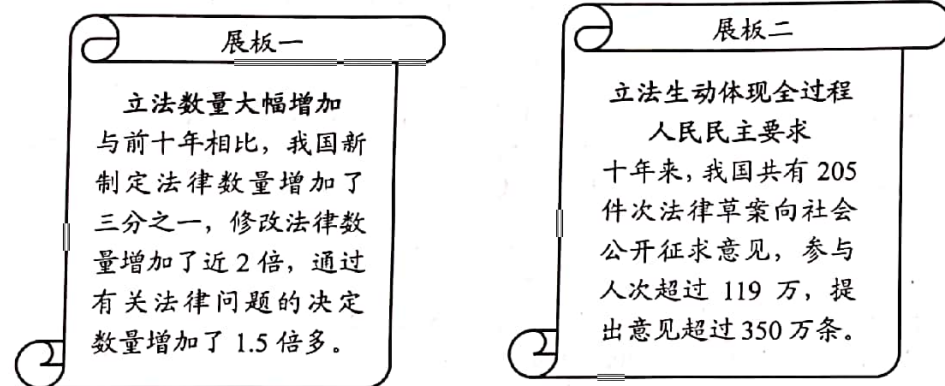 展板一
立法数量大幅增加
与前十年相比，我国新
制定法律数量增加了
三分之一，修改法律数
量增加了近2倍，通过
有关法律问题的决定
数量增加了1.5倍多。
展板二
立法生动体现全过程
人民民主要求
十年来，我国共有205
件次法律草案向社会
公开征求意见，参与
人次超过119万，提
出意见超过350万条。